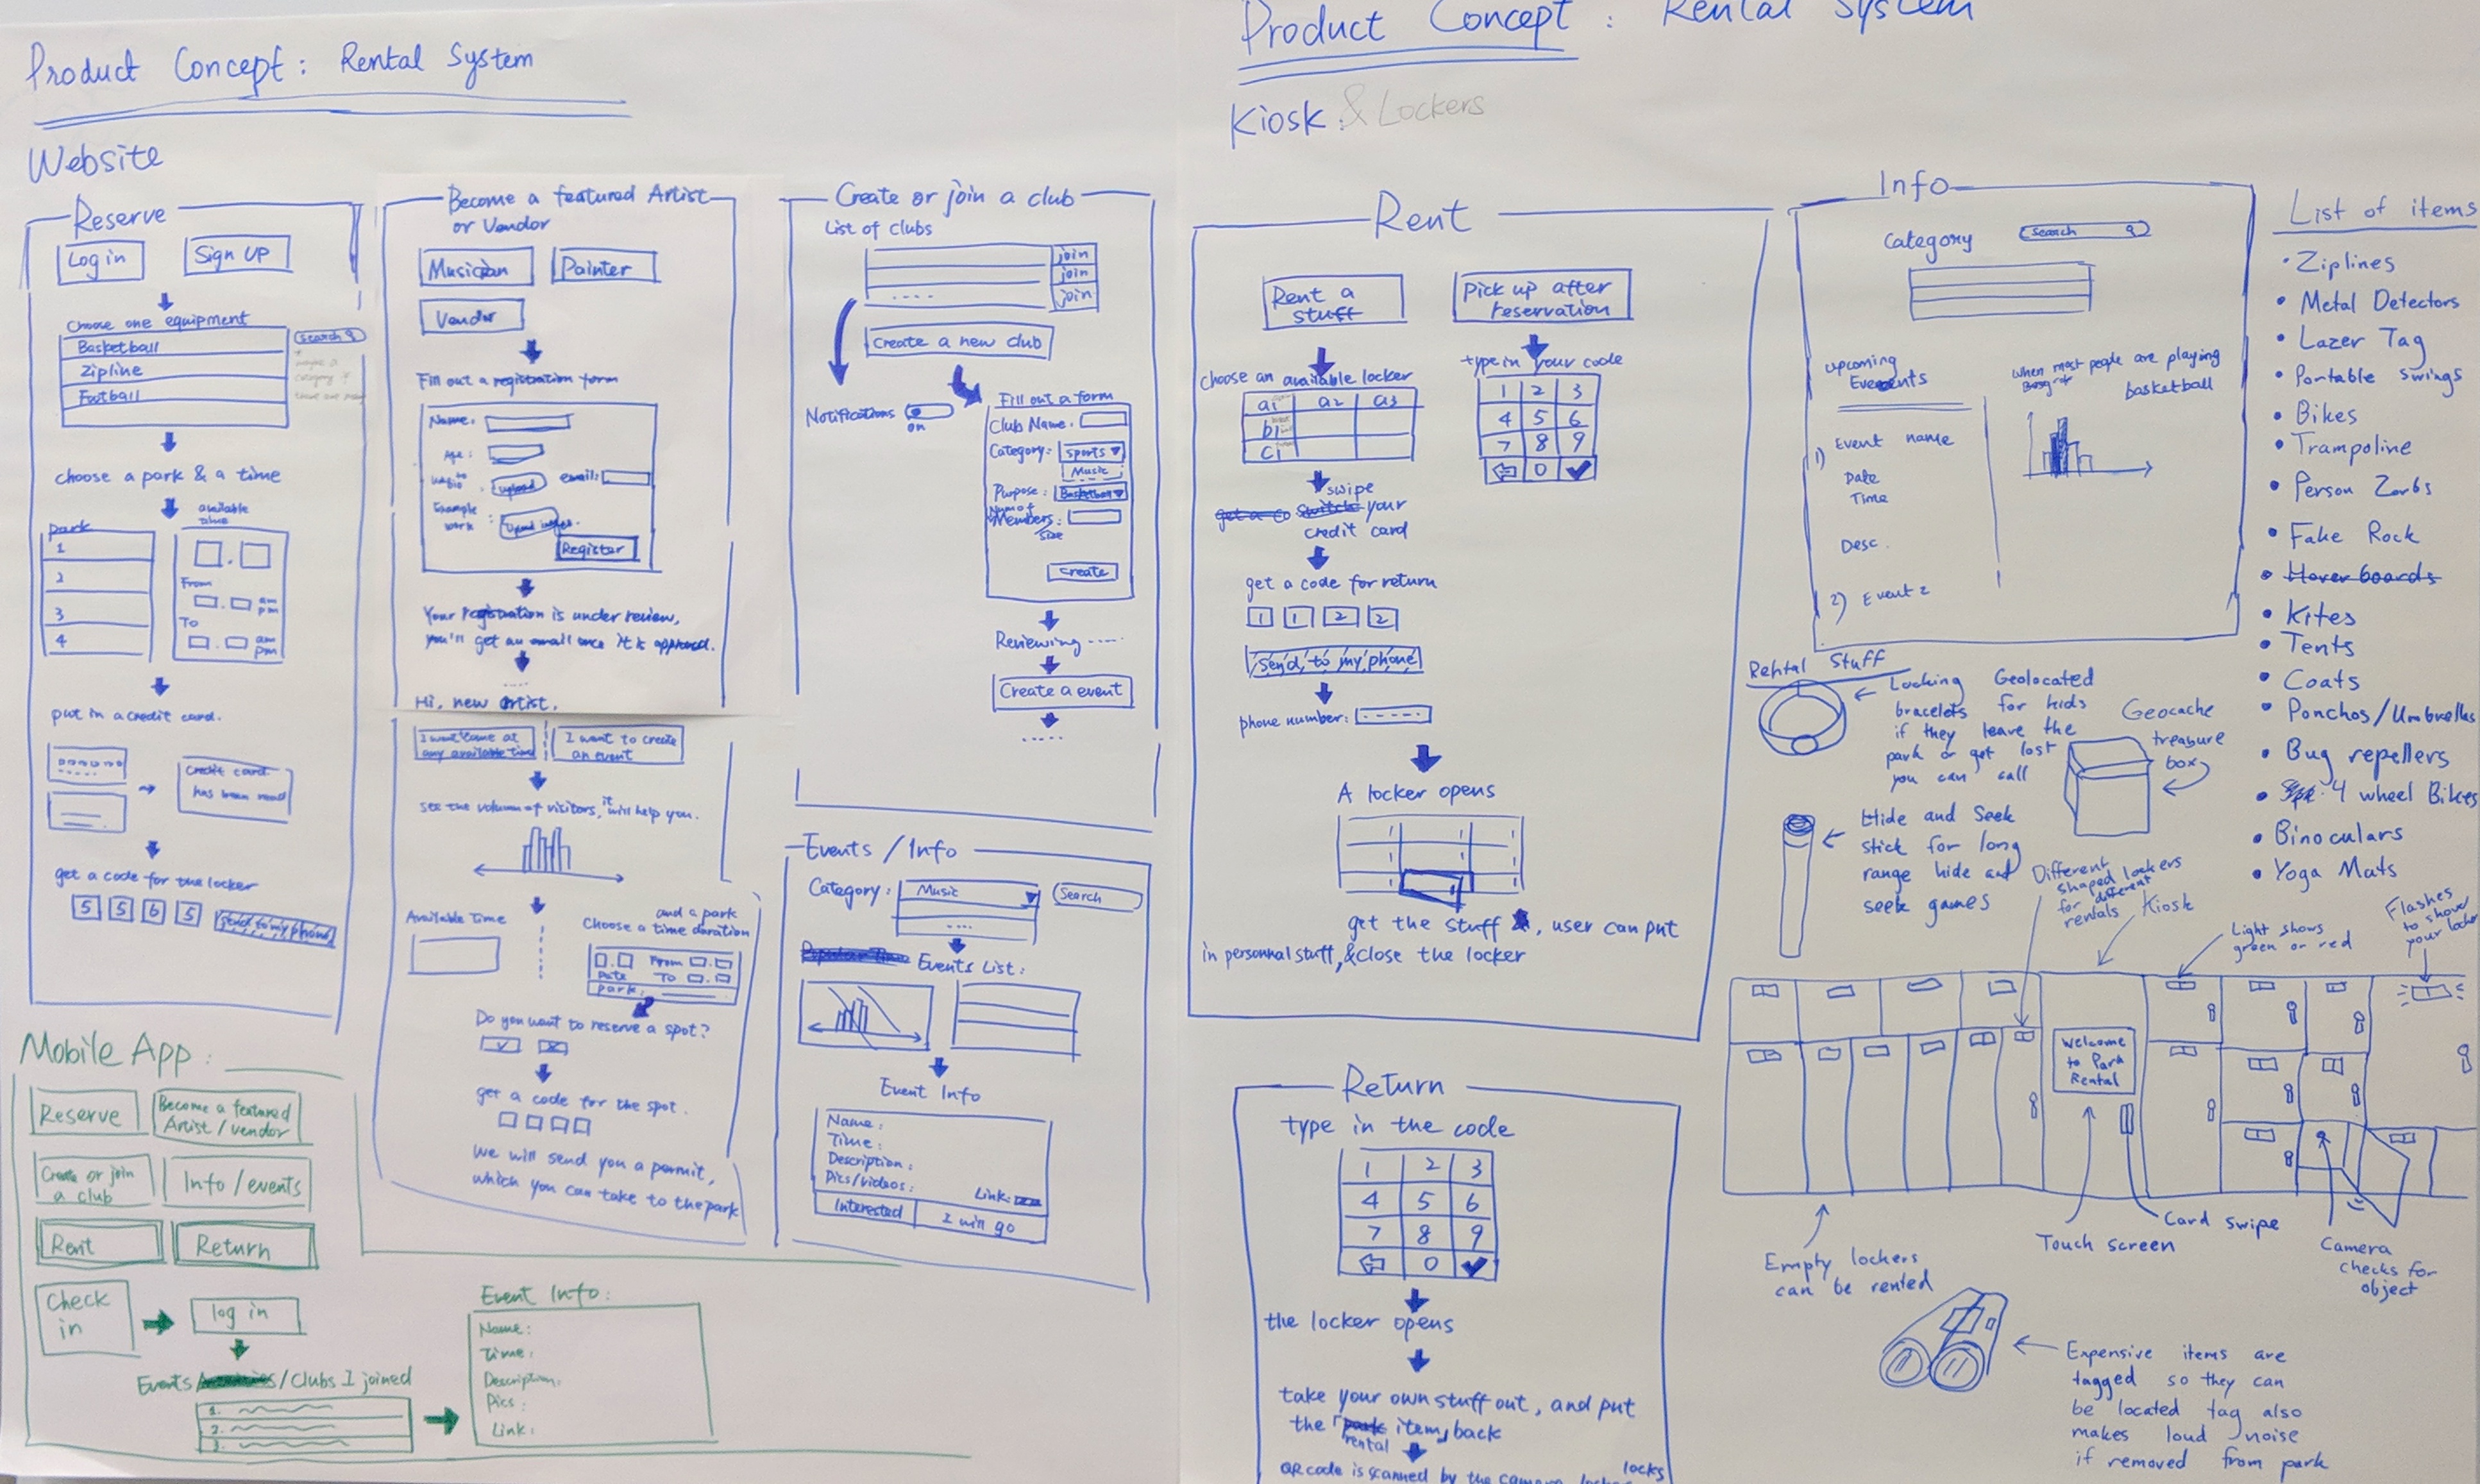 Product Concept : Rental System
Website
Reserve
Log in
Sign UP
Choose one equipment
Search
Basketball
Zipline
Football
choose a park & a time
park
available time
1
2
3
4
From
am
pm
To
am
pm
put in a credit card.
credit card
has been read
get a code for the locker
5 5 6 5
Send to my phone
Become a featured Artist
or Vendor
Musician
Painter
Vendor
Fill out a registration form
Name:
Age:
email:
upload
Example
work :
Register
Your registration is under review,
you'll get an email once it is approved.
Hi, new Artist.
I want come at
any available time
I want to create
an event
see the volume of visitors, it will help you.
Available Time
and a park
Choose a time duration
From
Date
To
park:
Do you want to reserve a spot?
get a code for the spot.
We will send you a permit,
which you can take to the park
Create or join a club
List of clubs
join
join
join
Create a new club
Notifications
on
Fill out a form
Club Name.
Category: Sports
Music
Purpose: Basketball
Num of
Members:
size
Create
Reviewing ----
Create a event
Events / Info
Category: Music
Search
Events List:
Event Info
Name:
Time:
Description:
Pics/videos:
Link:
Interested
I will go
Mobile App :
Reserve
Become a featured
Artist / vendor
Create or join
a club
Info / events
Rent
Return
Check
in
log in
Events /Clubs I joined
1.
2.
3.
Event Info:
Name:
Time:
Description:
Pics:
Link:
Product Concept : Rental System
Kiosk & Lockers
Rent
Rent a
stuff
Pick up after
reservation
choose an available locker
a1 a2 a3
b1
c1
type in your code
1 2 3
4 5 6
7 8 9
0
swipe
get a co switch your
credit card
get a code for return
1 1 2 2
Send to my phone
phone number:
A locker opens
get the stuff, user can put
in personnal stuff, & close the locker
Return
type in the code
1 2 3
4 5 6
7 8 9
0
the locker opens
take your own stuff out, and put
the park item, back
rental
QR code is scanned by the camera, locker locks
Info
Category
Search
upcoming
Events
1) Event name
Date
Time
Desc.
2) Event 2
when most people are playing
basketball
List of items
• Ziplines
• Metal Detectors
• Lazer Tag
• Portable swings
• Bikes
• Trampoline
• Person Zorbs
• Fake Rock
• Hover boards
• Kites
• Tents
• Coats
• Ponchos/Umbrellas
• Bug repellers
• 4 wheel Bikes
• Binoculars
• Yoga Mats
Rental Stuff
Locking Geolocated
bracelets for kids
if they leave the
park or get lost
you can call
Geocache
treasure
box
Hide and Seek
stick for long
range hide and
seek games
Different
shaped lockers
for different
rentals
Kiosk
Light shows
green or red
Flashes
to show
your locker
Welcome
to Park
Rental
Empty lockers
can be rented
Touch screen
Card swipe
Camera
checks for
object
Expensive items are
tagged so they can
be located tag also
makes loud noise
if removed from park